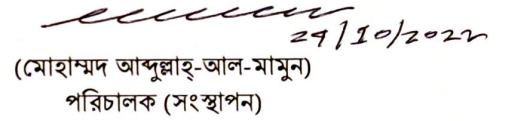 24/10/2022
(মোহাম্মদ আব্দুল্লাহ্-আল-মামুন)
পরিচালক (সংস্থাপন)